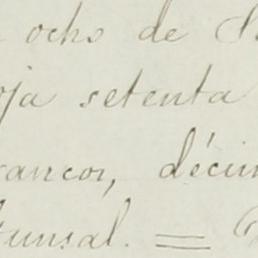 ocho de
oja setenta
rancos, décim
unsal. =